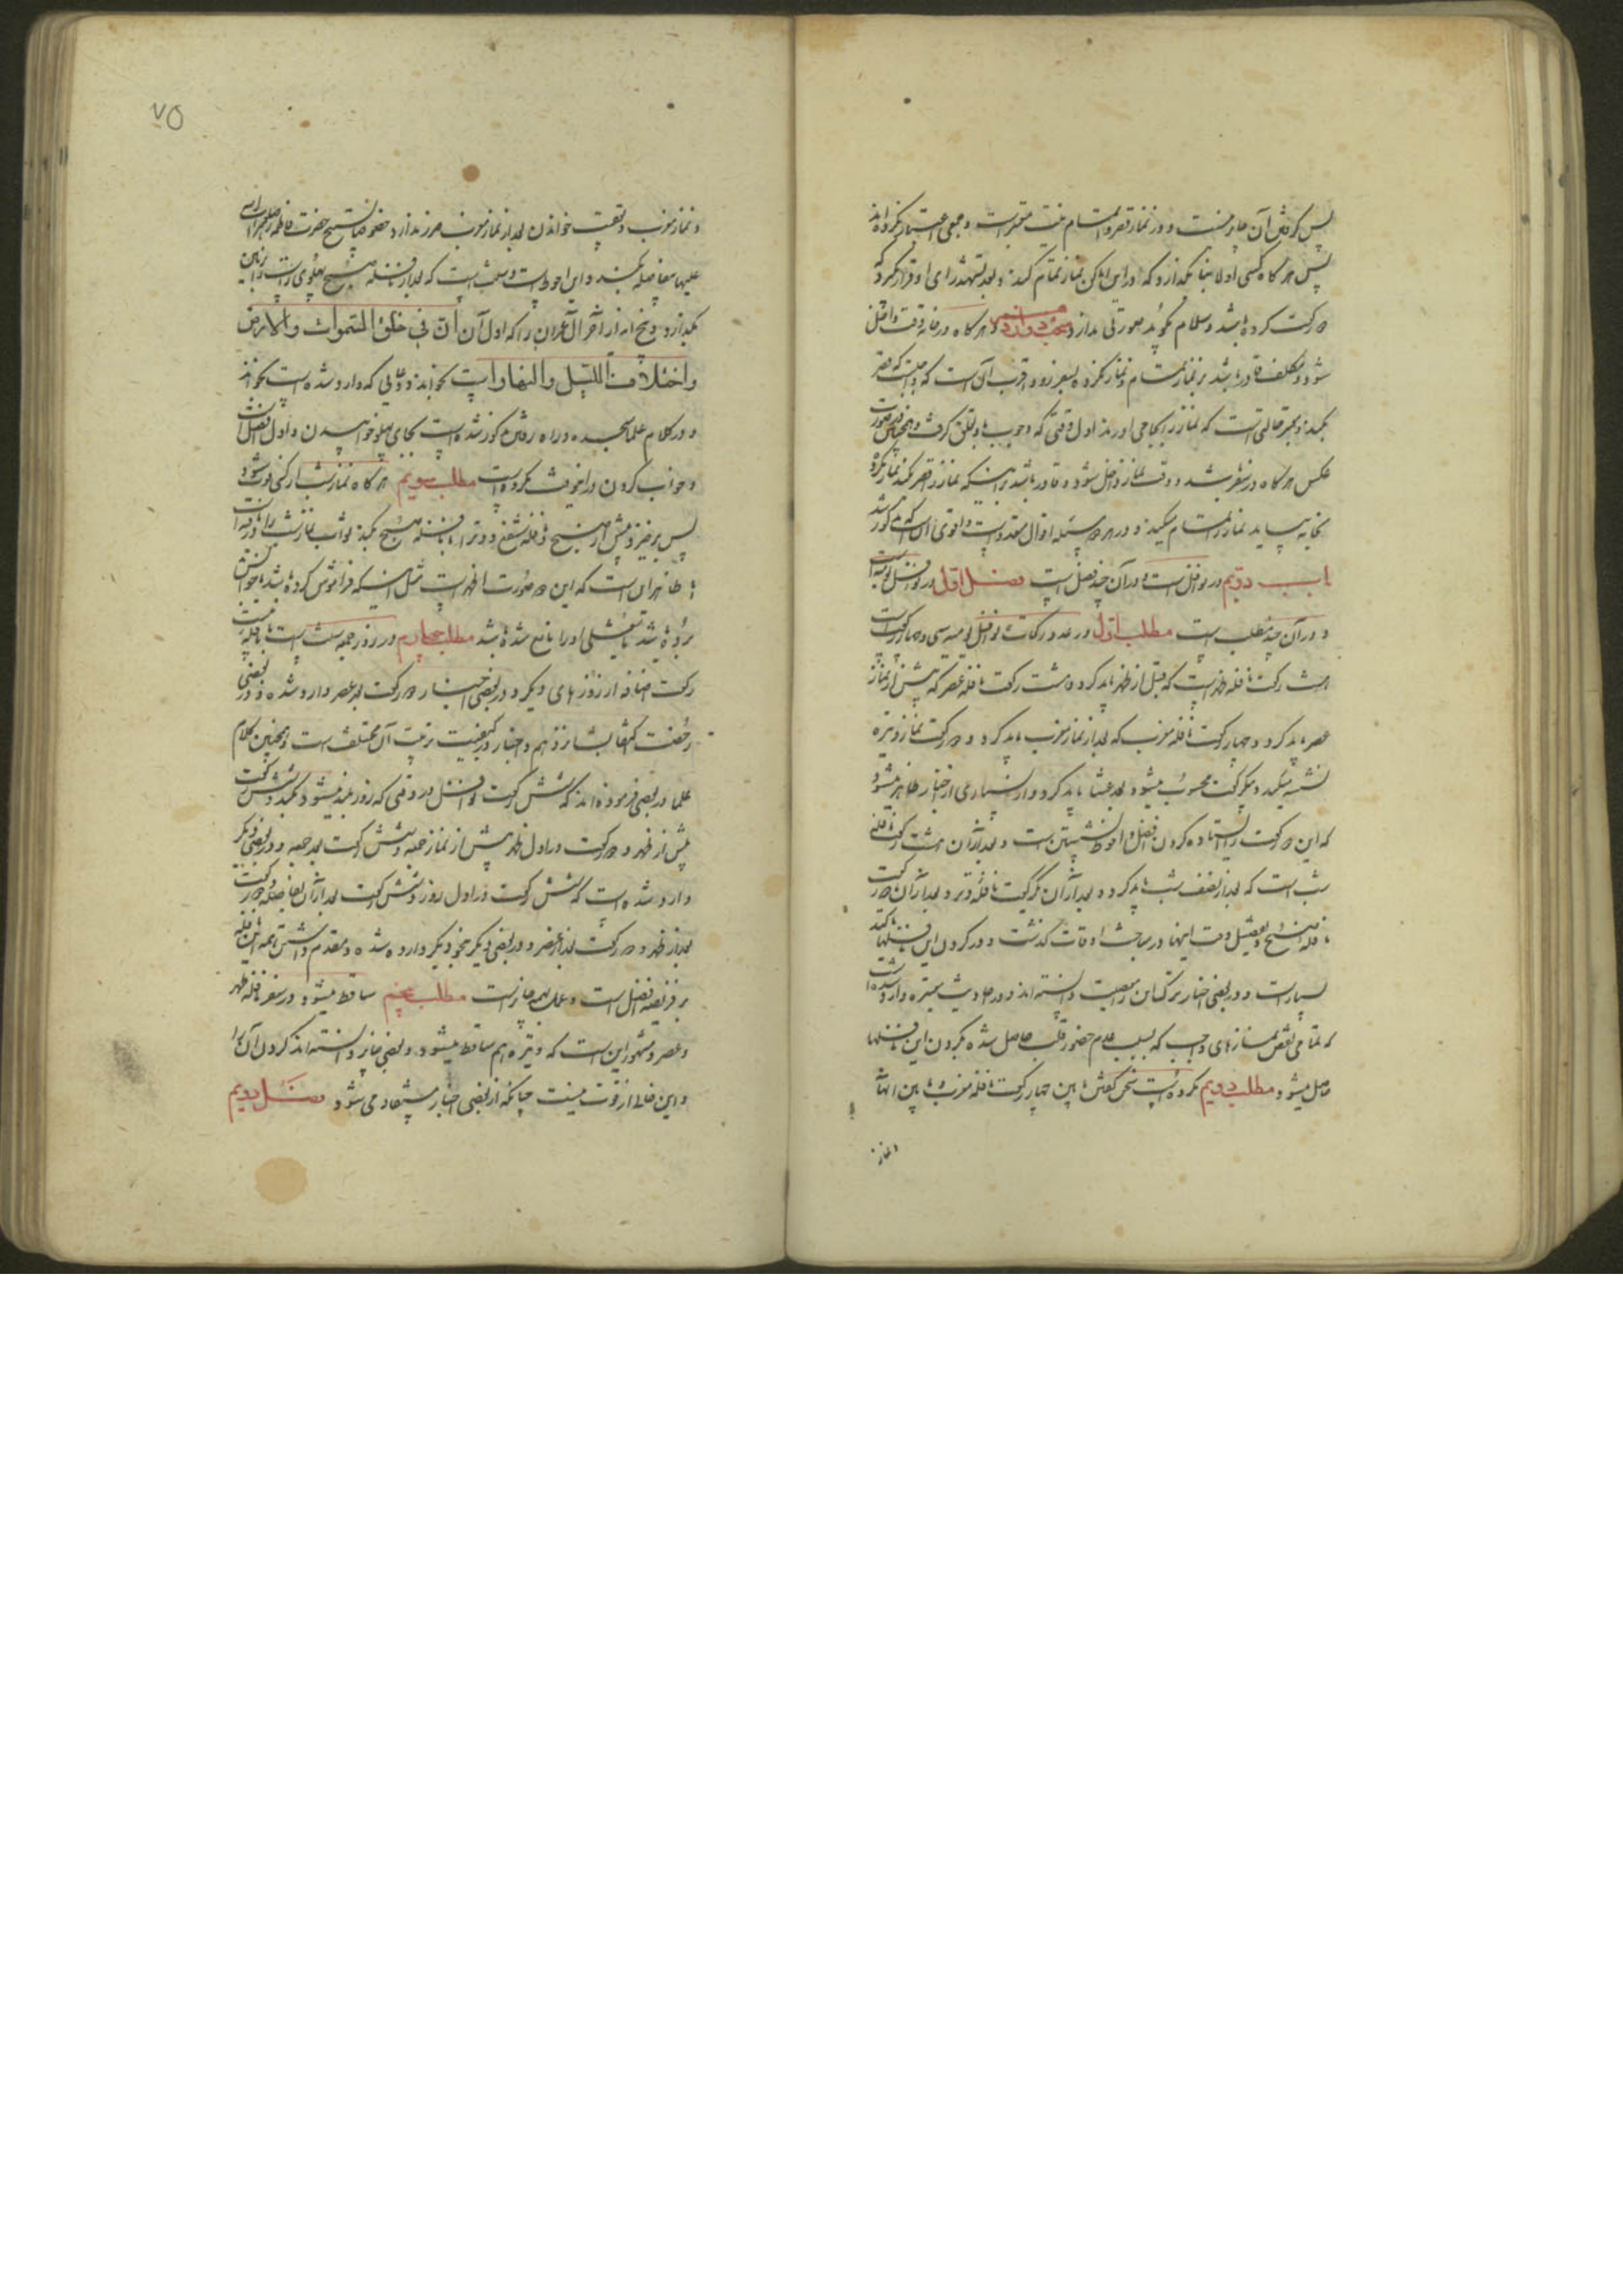 پس کردن آن جایز نیست و در نماز قصر و تمام نیت معتبر است و جمعی اعتبار نکرده‌اند
پس هرگاه کسی اولا بنا گذارد که در این اماکن نماز تمام کند و بعد تشهد رای او قرار گیرد که
دو رکعت کرده باشد و سلام بگوید صورتی ندارد هرگاه در خانه وقت داخل
شود و مکلف قادر باشد بر نماز تمام و نماز نکرده بسفر رود اقرب آن است که قصر
بکند و بهتر حالتی است که نماز را بجا می‌آورند اول وقتی که وجوب باو تعلق گرفت و همچنین
عکس هرگاه در سفر باشد و وقت نماز داخل شود و قادر باشد بر اینکه نماز را قصر بکند نماز نکرده
بخانه بیاید نماز را تمام میکند و در هر دو مسئله اقوال متعدد است و اقوی آن است که مذکور شد
باب دویم در نوافل است و در آن چند فصل است فصل اول در نوافل یومیه است
و در آن چند مطلب است مطلب اول در عدد رکعات نوافل یومیه سی و چهار رکعت است
هشت رکعت نافله ظهر است که قبل از ظهر باید کرد و هشت رکعت نافله عصر که پیش از نماز
عصر باید کرد و چهار رکعت نافله مغرب که بعد از نماز مغرب باید کرد و دو رکعت نماز وتیره
نشسته میکند و یکرکعت محسوب میشود بعد عشا باید کرد و از بسیاری از اخبار ظاهر میشود
که این دو رکعت را ایستاده کردن افضل و احوط نشستن است و بعد از آن هشت رکعت نافله
شب است که بعد از نصف شب باید کرد و بعد از آن یکرکعت نافله وتر و بعد از آن دو رکعت
نافله صبح و تفصیل وقت اینها در مباحث اوقات گذشت و در کردن این نافلها تاکید
بسیار است و در بعضی اخبار ترک این را معصیت دانسته‌اند و در احادیث معتبره وارد شده است
که تلافی نقص نمازهای واجب که بسبب عدم حضور قلب حاصل شده بکردن این نافلها
حاصل میشود مطلب دویم مکروه است سخن گفتن مابین چهار رکعت نافله مغرب و مابین آنها
و نماز
۷۵
و نماز مغرب و تعقیب خواندن بعد از نماز مغرب ضرر ندارد خصوصا تسبیح حضرت فاطمه زهرا
علیها مفاصله بکند و این احوط است و سنت است که بعد از نافله صبح پهلوی راست را بر زمین
بگذارد و پنج آیه از آخر آل عمران را که اول آن ان في خلق السموات والارض
واختلاف الليل والنهار است بخواند و دعائی که وارد شده است بخواند
و در کلام علما سجده و راه رفتن مذکور شده است بجای پهلو خوابیدن و اول افضل است
و خواب کردن در این وقت مکروه است مطلب سویم هرگاه نماز شب از کسی فوت شود
پس برخیزد پیش از صبح نافله شفع و وتر را با نافله صبح بکند ثواب نماز شب را دریافته است
ظاهر این است که این در صورت اینست مثل اینکه فراموش کرده باشد یا خوابش
برده باشد یا شغلی او را مانع شده باشد مطلب چهارم در روز جمعه سنت است
رکعت اضافه از روزهای دیگر و در بعضی اخبار دو رکعت بعد عصر وارد شده و در بعضی
رخصت اکتفا بشانزدهم و اخبار در کیفیت ترتیب آن مختلف است و همچنین کلام
علما و بعضی فرموده‌اند که شش رکعت نوافل در وقتی که روز بلند میشود بکند و شش رکعت
پیش از ظهر و دو رکعت در اول ظهر پیش از نماز جمعه و شش رکعت بعد جمعه و در بعضی دیگر
وارد شده است که شش رکعت در اول روز و شش رکعت بعد از آن بفاصله و دو رکعت
بعد از ظهر و دو رکعت بعد از عصر و در بعضی دیگر بنحو دیگر وارد شده و مقدم داشتن همه این نافله
بر فریضه افضل است و عمل بهمه جایز است مطلب پنجم ساقط میشود در سفر نافله ظهر
و عصر و مشهور این است که وتیره هم ساقط میشود و بعضی جایز دانسته‌اند کردن آن را
و این خالی از قوت نیست چنانکه از بعضی اخبار مستفاد می‌شود فصل دویم